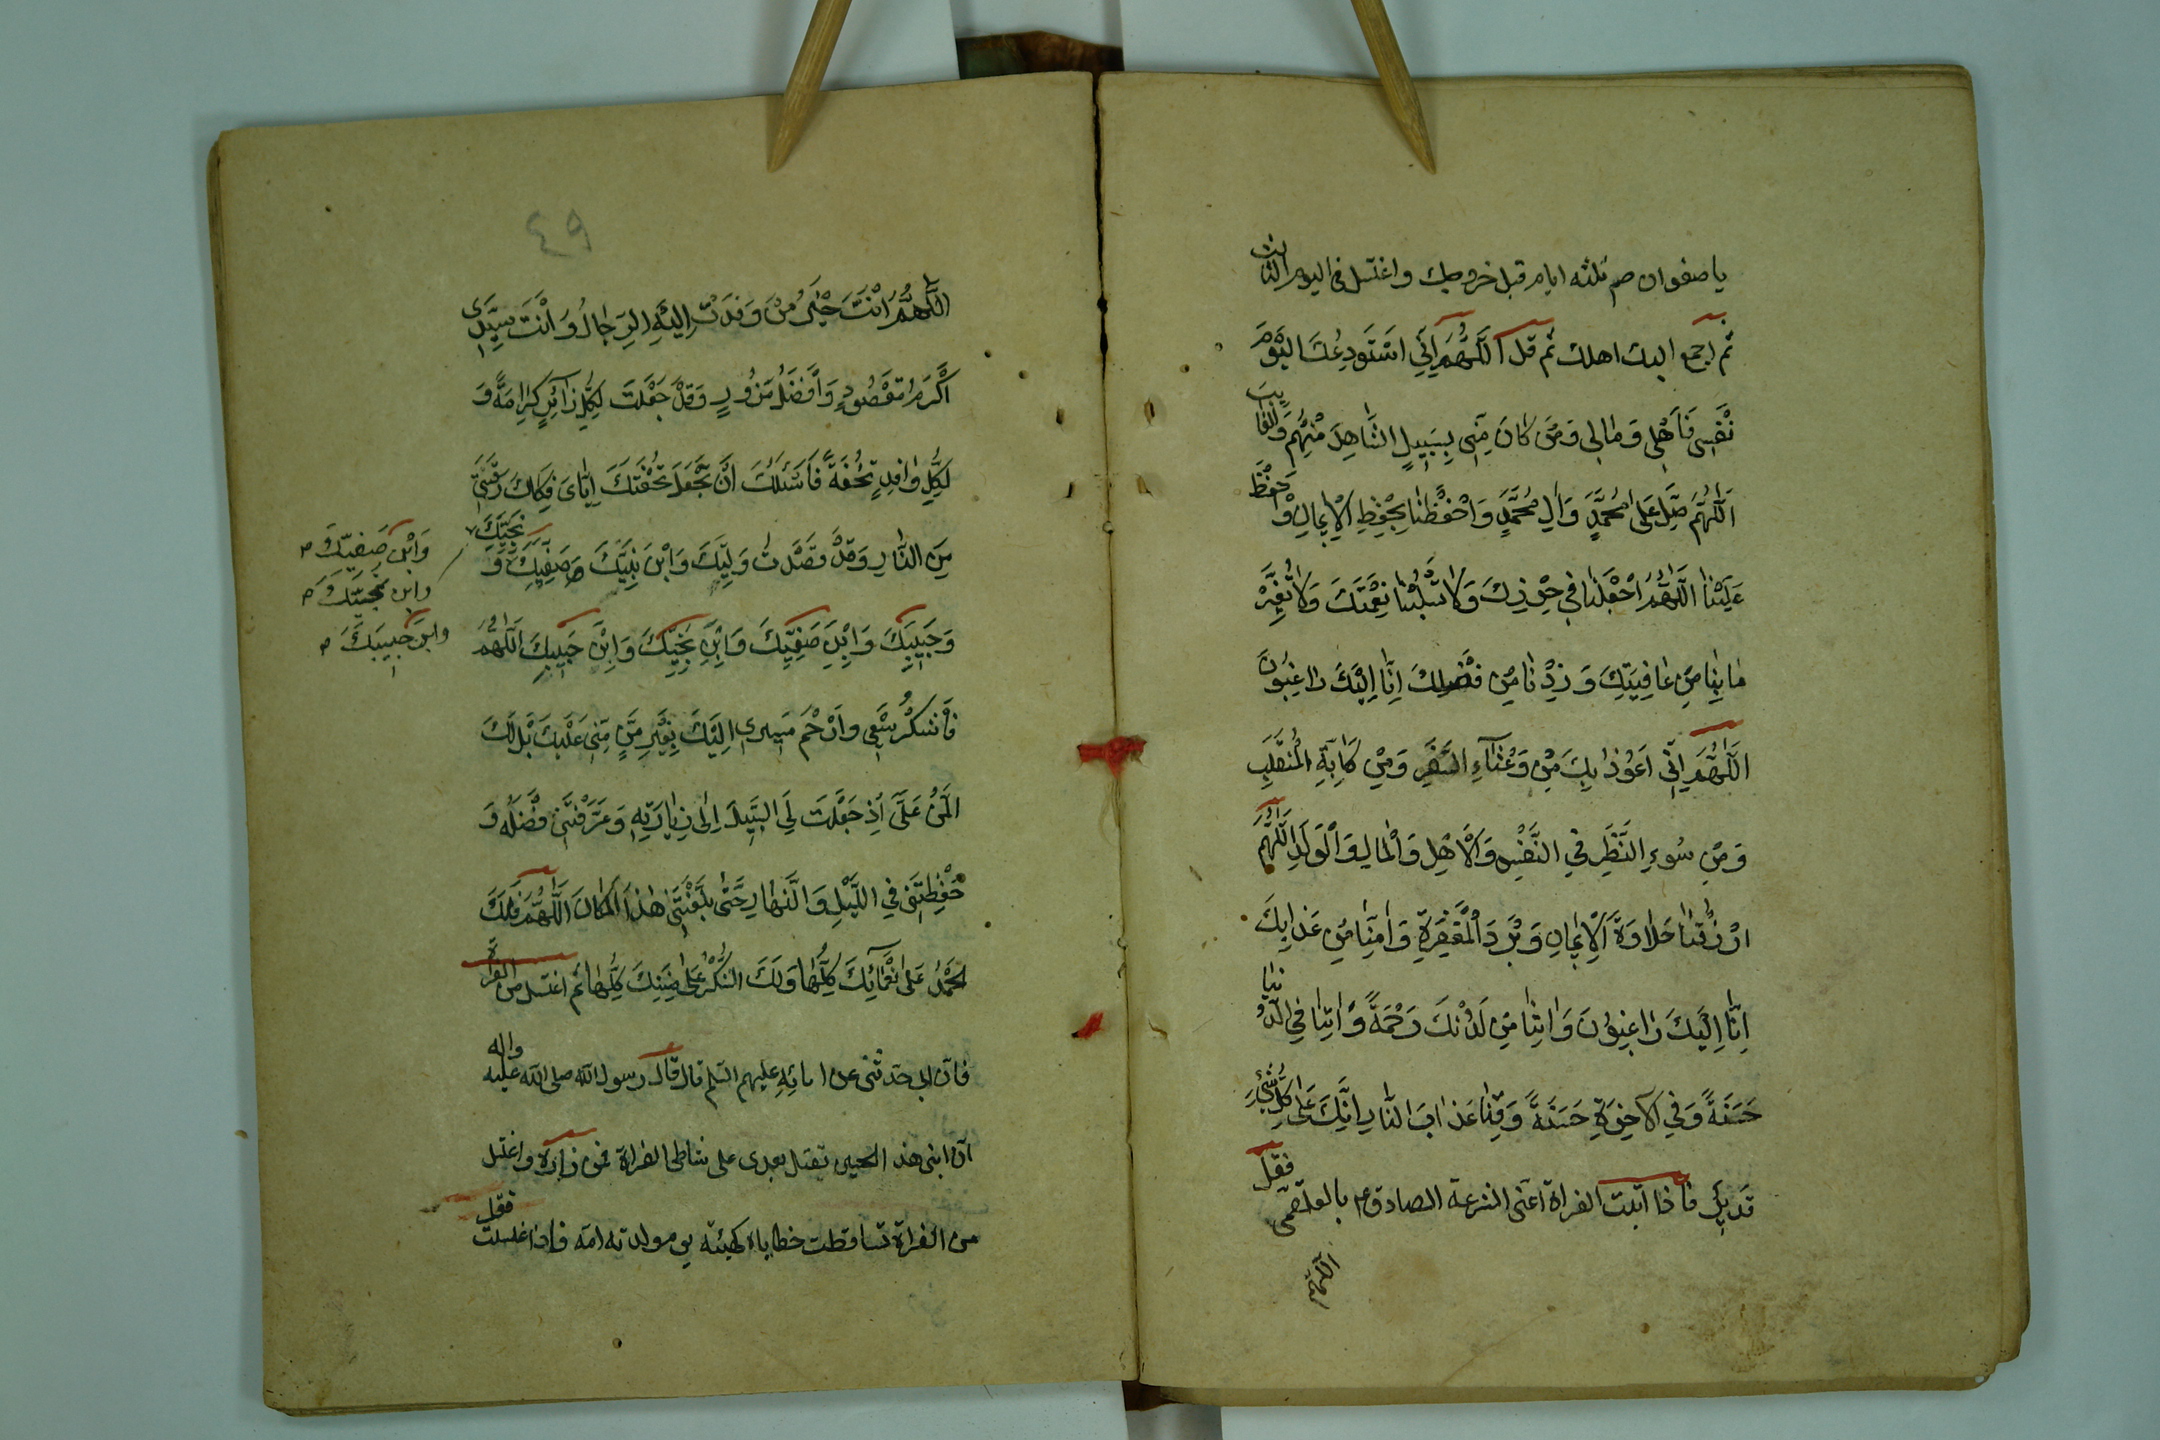 يا صفوان صم ثلثه ايام قبل خروجك واغتسل فى اليوم الثالث
ثم اجمع اليك اهلك ثم قل اَللّهُمَّ اِنّي اَسْتَودِعُكَ اليَوْمَ
نَفْسِى وَاَهْلِي وَمٰالِي وَمَنْ كٰانَ مِنّى بِسَبيلٍ الشّاهِدَ مِنْهُم وَالْغٰايِبَ
اَللّٰهُمَّ صَلِّ عَلىٰ مُحَمَّدٍ وَالِ مُحَمَّدٍ وَاحْفَظْنٰا بِحِفْظِ الْاِيمٰانِ وَاحْفَظْ
عَلَيْنٰا اَللّٰهُمَّ اجْعَلْنٰا في حِرْزِكَ وَلاٰ تَسْلُبْنٰا نِعْمَتَكَ وَلاٰ تُغَيِّرْ
مٰا بِنٰا مِنْ عٰافِيَتِكَ وَزِدْنٰا مِنْ فَضْلِكَ اِنّٰا اِلَيْكَ رٰاغِبُونَ
اَللّٰهُمَّ اِنّي اَعُوذُ بِكَ مِنْ وَعْثٰآءِ السَّفَرِ وَمِنْ كَاٰبَةِ الْمُنْقَلَبِ
وَمِنْ سُوءِ النَّظَرِ فِي النَّفْسِ وَالْاَهْلِ وَالْمٰالِ وَالْوَلَدِ اَللّٰهُمَّ
ارْزُقْنٰا حَلاٰوَةَ الْاِيمٰانِ وَبَرْدَ الْمَغْفِرَةِ وَاٰمِنّٰا مِنْ عَذٰابِكَ
اِنّٰا اِلَيْكَ رٰاغِبُونَ وَاٰتِنٰا مِنْ لَدُنْكَ رَحْمَةً وَاٰتِنٰا فِي الدُّنْيٰا
حَسَنَةً وَفِي الْآخِرَةِ حَسَنَةً وَقِنٰا عَذٰابَ النّٰارِ اِنَّكَ عَلىٰ كُلِّ شَيْءٍ
قَديرٌ فاذا اتيت الفراة اعنى الشرعة الصادق بالعلقمى فقل
اللّهمّ
٤٩
اَللّٰهُمَّ اَنْتَ خَيْرُ مَنْ وَفَدَتْ اِلَيْهِ الرِّجٰالُ وَاَنْتَ سَيِّدِى
اَكْرَمُ مَقْصُودٍ وَاَفْضَلُ مَزُورٍ وَقَدْ جَعَلْتَ لِكُلِّ زٰائِرٍ كَرٰامَةً وَ
لِكُلِّ وٰافِدٍ تُحْفَةً فَاَسْئَلُكَ اَنْ تَجْعَلَ تُحْفَتَكَ اِيّٰاىَ فِكٰاكَ رَقَبَتى
مِنَ النّٰارِ وَقَدْ قَصَدْتُ وَلِيَّكَ وَابْنَ نَبِيِّكَ وَصَفِيِّكَ وَ نَجِيِّكَ
وَحَبِيبِكَ وَابْنِ صَفِيِّكَ وَابْنِ نَجِيِّكَ وَابْنَ حَبِيبِكَ اَللّٰهُمَّ
فَاشْكُرْ سَعْيى وَارْحَمْ مَسيرى اِلَيْكَ بِغَيْرِ مَنٍّ مِنّى عَلَيْكَ بَلْ لَكَ
الْمَنُّ عَلَىَّ اِذْ جَعَلْتَ لِيَ السَّبيلَ اِلىٰ زِيٰارَتِهِ وَعَرَّفْتَنى فَضْلَهُ وَ
حَفِظْتَنى فِي اللَّيْلِ وَالنَّهٰارِ حَتّٰى بَلَّغْتَنى هٰذَا الْمَكٰانَ اَللّٰهُمَّ فَلَكَ
الْحَمْدُ عَلىٰ نَعْمٰائِكَ كُلِّهٰا وَلَكَ الشُّكْرُ عَلىٰ مِنَنِكَ كُلِّهٰا ثم اغتسل من الفراة
فان ابى حدثنى عن ابائه عليهم السلم قال قال رسول الله صلى الله عليه واله
ان ابنى هذا الحسين يقتل بعدى على شاطئ الفراة فمن زاره واغتسل
من الفراة تساقطت خطاياه كهيئة يوم ولدته امه فاذا اغتسلت فقل
وَابْنِ صَفِيِّكَ وَ
وابن نَجِيِّكَ وَ
وابن حَبيبِكَ